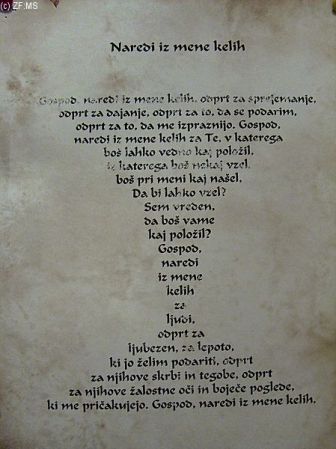 (c) ZF.MS
Naredi iz mene kelih
Gospod, naredi iz mene kelih, odprt za sprejemanje,
odprt za dajanje, odprt za to, da se podarim,
odprt za to, da me izpraznijo. Gospod,
naredi iz mene kelih za Te, v katerega
boš lahko vedno kaj položil,
iz katerega boš nekaj vzel.
boš pri meni kaj našel,
Da bi lahko vzel?
Sem vreden,
da boš vame
kaj položil?
Gospod,
naredi
iz mene
kelih
za
ljudi,
odprt za
ljubezen, za lepoto,
ki jo želim podariti, odprt
za njihove skrbi in tegobe, odprt
za njihove žalostne oči in boječe poglede,
ki me pričakujejo. Gospod, naredi iz mene kelih.